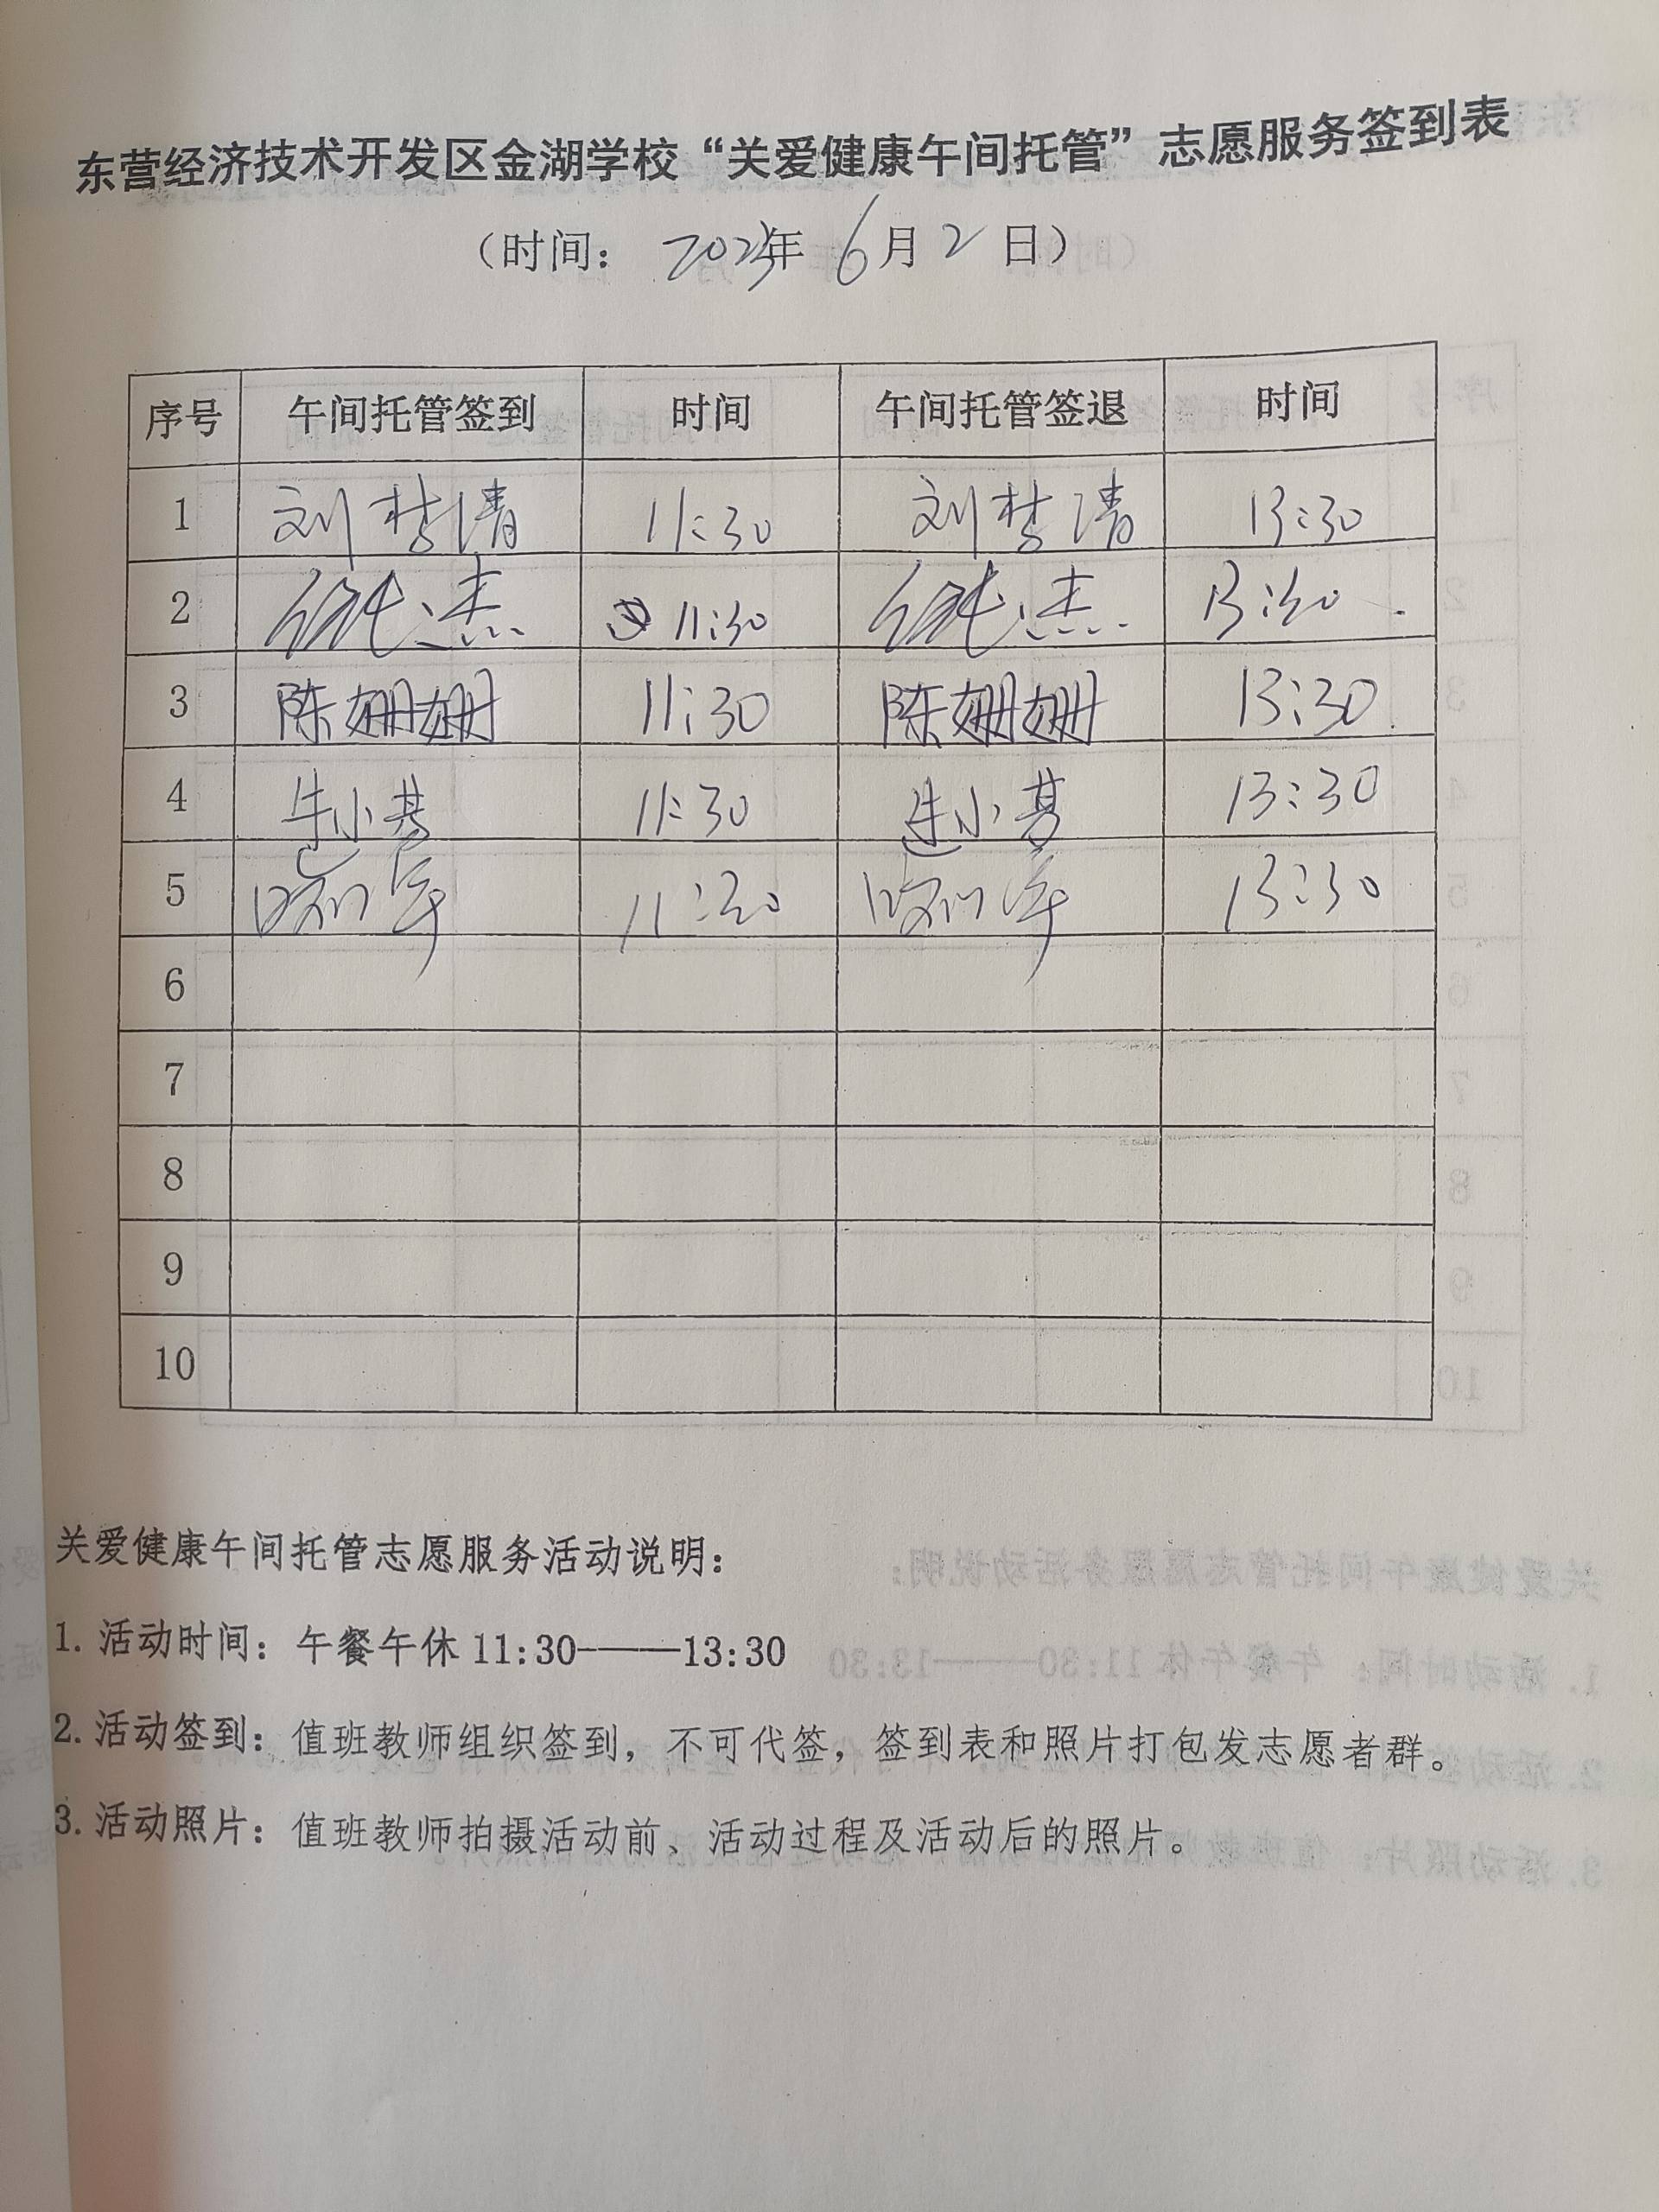 东营经济技术开发区金湖学校“关爱健康午间托管”志愿服务签到表
（时间： 2023年 6月 2日）
序号 午间托管签到 时间 午间托管签退 时间
1 刘梦清 11:30 刘梦清 13:30
2 杰 11:30 杰 13:30
3 陈姗姗 11:30 陈姗姗 13:30
4 小 11:30 小 13:30
5 11:30 13:30
6
7
8
9
10
关爱健康午间托管志愿服务活动说明：
1. 活动时间：午餐午休 11:30———13:30
2. 活动签到：值班教师组织签到，不可代签，签到表和照片打包发志愿者群。
3. 活动照片：值班教师拍摄活动前、活动过程及活动后的照片。